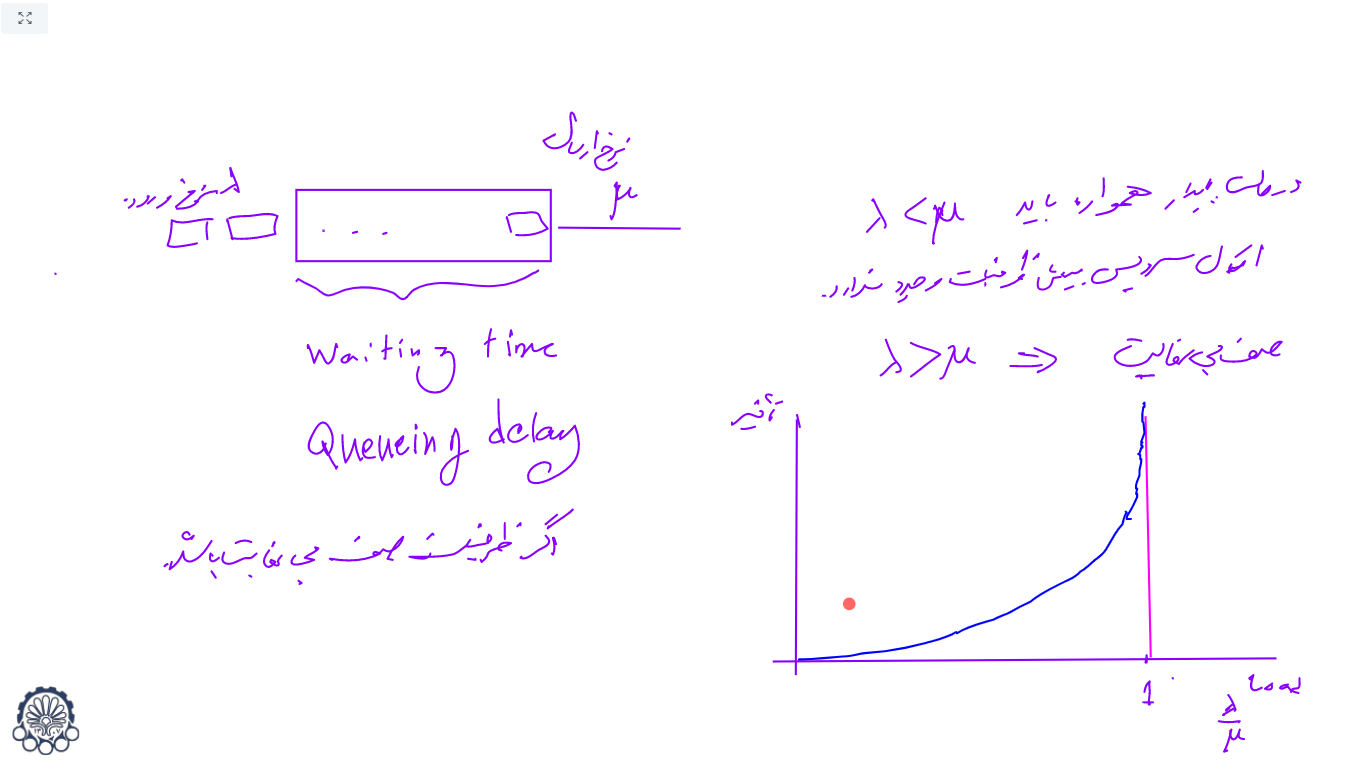 نرخ ارسال
μ
λ نرخ ورود
. . .
Waiting time
Queueing delay
اگر ظرفیت صف بی نهایت باشد.
در حالت پایدار همواره باید λ < μ
امکان سرویس بیش از ظرفیت وجود ندارد.
λ > μ ⇒ صف بی نهایت
تأخیر
1
Load
λ/μ